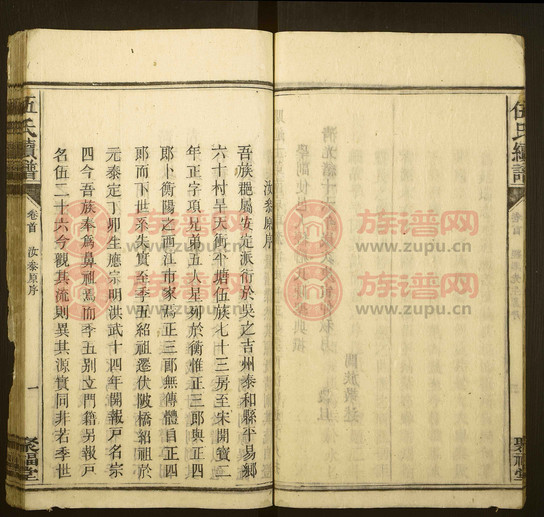 伍氏續譜
卷首
汝泰原序
一
聚福堂
汝泰原序
吾族麗屬安定派衍於吳之吉州泰和縣千易鄉
六十村早天衝平塘伍族七十三房至宋開寶二
年正字項兄弟五人星列於衡惟正三郎與正四
郎卜衡陽之西江市家焉正三郎無傳體自正四
郎而下世系失實至季五紹祖遷伏陂橋紹祖於
元泰定丁卯生應宗明洪武十四年開報戶名宗
四今吾族奉爲鼻祖焉而季五别立門籍另報戶
名伍二十六今觀其流則異其源實同非若季世
伍氏續譜
卷首
聚福堂
族谱网
www.zupu.cn
族谱网
www.zupu.cn
族谱网
www.zupu.cn
族谱网
www.zupu.cn